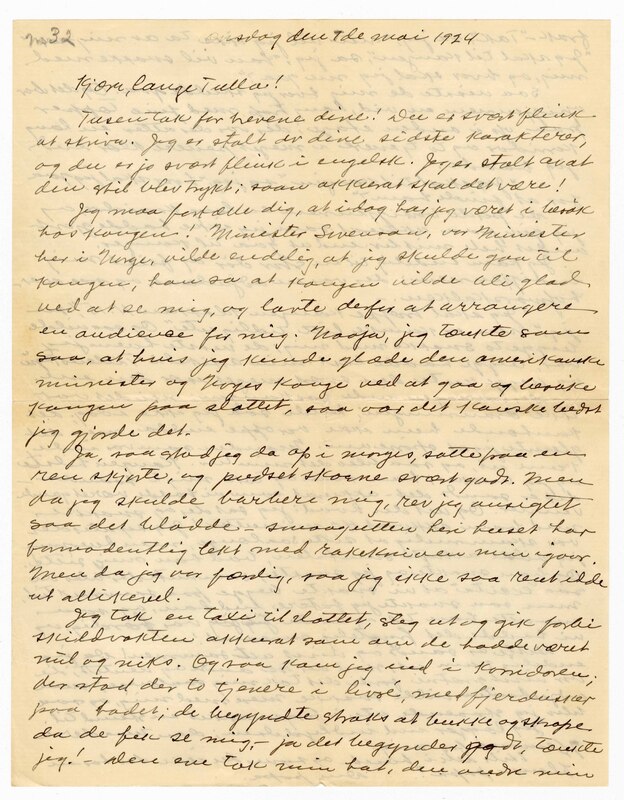 No 32
onsdag den 7de mai 1924
Kjære, lange Tulla!
Tusen tak for brevene dine! Du er svært flink
at skrive. Jeg er stolt av dine sidste karakterer,
og du er jo svært flink i engelsk. Jeg er stolt av at
din stil blev trykt; saan akkurat skal det være!
Jeg maa fortælle dig, at idag har jeg været i besøk
hos kongen! Minister Swenson, vor Minister
her i Norge, vilde endelig, at jeg skulde gaa til
kongen, han sa at kongen vilde bli glad
ved at se mig, og lovte derfor at arrangere
en audience for mig. Naaja, jeg tænkte som
saa, at hvis jeg kunde glæde den amerikanske
minister og Norges konge ved at gaa og besøke
kongen paa slottet, saa var det kanske bedst
jeg gjorde det.
Ja, saa stod jeg da op i morges, satte paa en
ren skjorte, og pudset skoene svært godt. Men
da jeg skulde barbere mig, rev jeg ansigtet
saa det blødde – smaagutten her i huset har
formodentlig lekt med rakekniven min igaar.
Men da jeg var færdig, saa jeg ikke saa rent ilde
ut allikevel.
Jeg tok en taxi til slottet, steg ut og gik forbi
skildvakten akkurat som om de hadde været
nul og niks. Og saa kom jeg ind i korridoren,
der stod der to tjenere i livré, med fjerdusker
paa hodet; de begyndte straks at bukke og skrape
da de fik se mig, – ja det begynder godt, tænkte
jeg! – Den ene tok min hat, den andre min